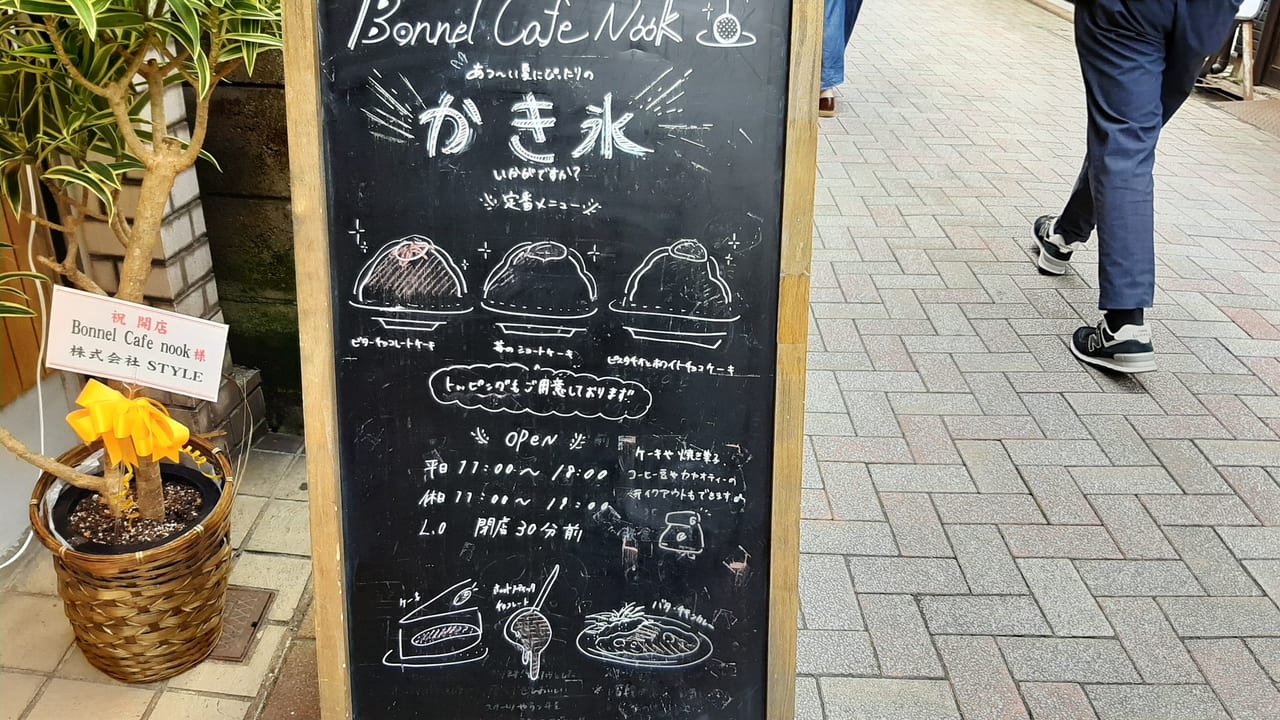 Bonnel Cafe Nook
あつ〜い夏にぴったりの
かき氷
いかがですか?
定番メニュー
ビターチョコレートケーキ
苺のショートケーキ
ピスタチオとホワイトチョコケーキ
トッピングもご用意しております!!
OPEN
平日 11:00〜 18:00
11:00〜
L.O 閉店30分前
ケーキや焼き菓子、
コーヒー豆や
テイクアウトもできます
ケーキ
ホットスティック
チョコレート
バターチキンカレー
祝 開店
Bonnel Cafe nook様
株式会社 STYLE